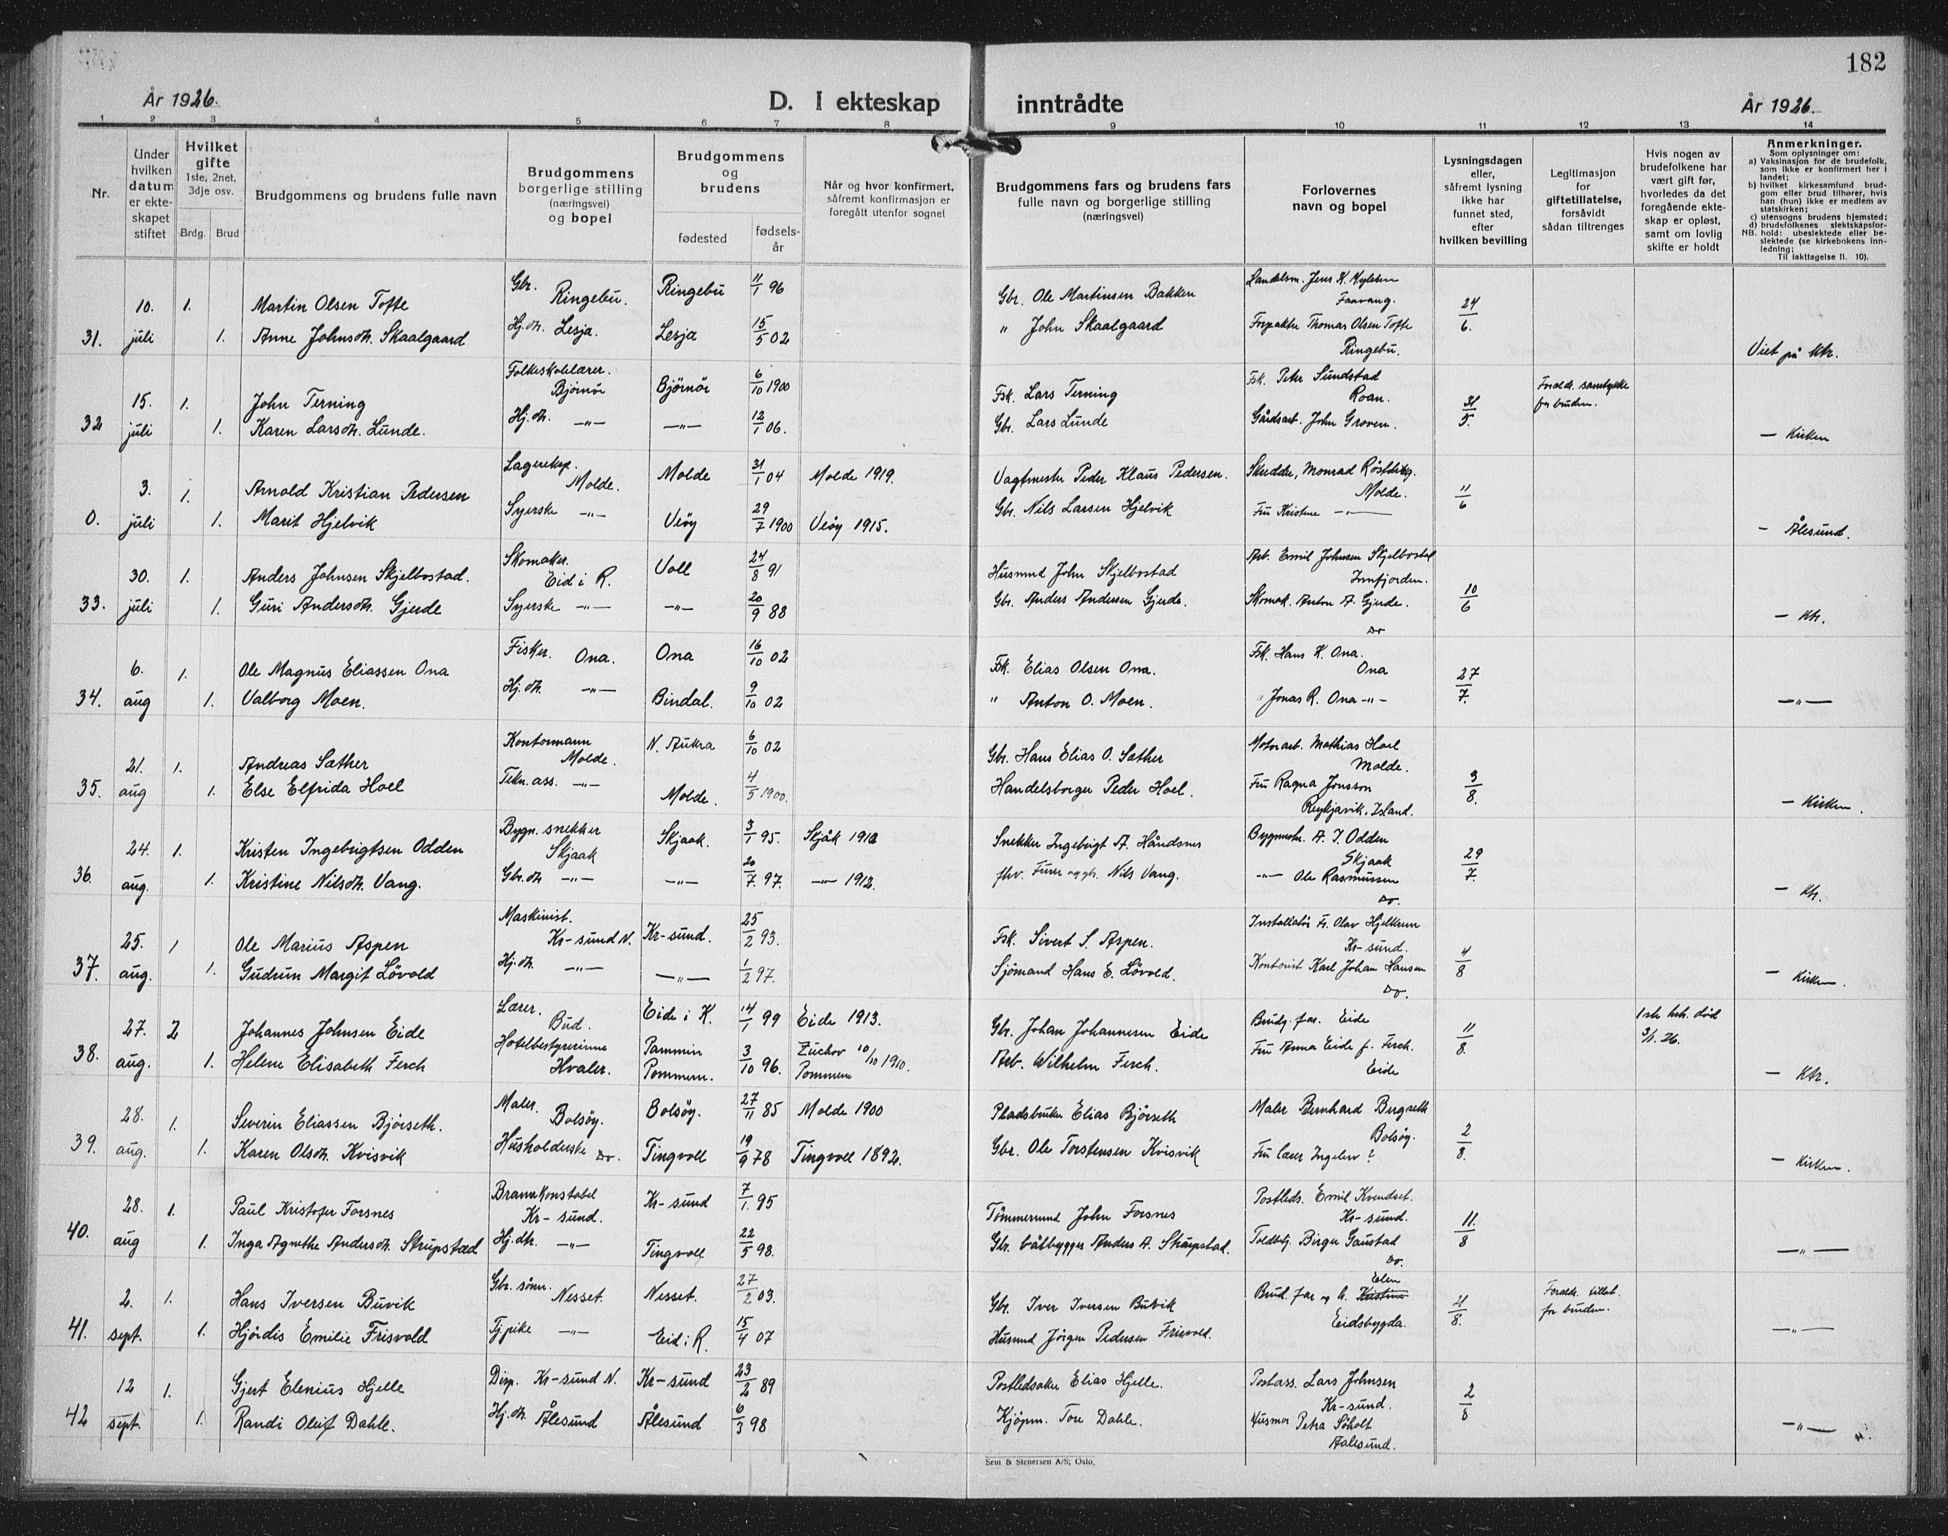 182
År 1926.
D. I ekteskap inntrådte
År 1926.
1 2 3 4 5 6 7 8 9 10 11 12 13 14
Nr.
Under hvilken datum er ekteskapet stiftet
Hvilket gifte 1ste, 2net, 3dje osv.
Brdg. Brud
Brudgommens og brudens fulle navn
Brudgommens borgerlige stilling (næringsvei) og bopel
Brudgommens og brudens
fødested
fødsels-år
Når og hvor konfirmert, såfremt konfirmasjon er foregått utenfor sognet
Brudgommens fars og brudens fars fulle navn og borgerlige stilling (næringsvei)
Forlovernes navn og bopel
Lysningsdagen eller, såfremt lysning ikke har funnet sted, efter hvilken bevilling
Legitimasjon for giftetillatelse, forsåvidt sådan tiltrenges
Hvis nogen av brudefolkene har vært gift før, hvorledes da det foregående ekteskap er opløst, samt om lovlig skifte er holdt
Anmerkninger.
Som oplysninger om:
a) Vaksinasjon for de brudefolk, som ikke er konfirmert her i landet;
b) hvilket kirkesamfund brudgom eller brud tilhører, hvis han (hun) ikke er medlem av statskirken;
c) utensogns brudens hjemsted;
d) brudefolkenes slektskapsforhold: ubeslektede eller beslektede (se kirkebokens innledning;
NB.
Til iakttagelse II. 10).
10. 1. Martin Olsen Tofte Gbr. Ringebu. Ringebu 11/1 96 Gbr. Ole Martinsen Bakken Landelsm. Jens K. Faavang. 24/6.
31. juli 1. Anne Johnsdt. Skaalgaard Hj.dt. Lesja. Lesja 15/5 02 " John Skaalgaard Thomas Olsen Tofte Ringebu. Viet på ktr.
15. 1. John Terning Folkeskolelærer. Bjørnör Bjørnör 6/10 1900 Fsk. Lars Terning Fsk. Peter Sundstad Roan. 31/5. Foreldr. samtykke for bruden.
32 juli 1. Karen Larsdt. Lunde. Hj.dt. —„— —„— 12/1 06. Gbr. Lars Lunde Gårdsarb. John Groven. — Kirken
3. 1. Arnold Kristian Pedersen Lagereksp. Molde. Molde 31/1 04 Molde 1919. Vagtmester Peder Klaus Pedersen. Skredder, Monrad Röstberg. Molde. 11/6
0. juli 1. Marit Hjelvik Syerske —„— Veöy 29/7 1900 Veöy 1915. Gbr. Nils Larsen Hjelvik Fru Kristine —„— — Ålesund.
30. 1. Anders Johnsen Skjelbostad. Skomaker. Eid i R. Voll 24/8 91 Husmnd John Skjelbostad Arb. Emil Johnsen Skjelbostad Innfjorden. 10/6
33. juli 1. Guri Andersdt. Gjerde Syerske —„— —„— 20/9 88 Gbr. Anders Andersen Gjerde. Skomak. Anton A. Gjerde. Do — ktr.
6. 1. Ole Magnus Eliassen Ona Fisker. Ona. Ona 16/10 02 Fsk. Elias Olsen Ona. Fsk. Hans K. Ona. Ona 27/7.
34. aug 1. Valborg Moen. Hj.dt. —„— Bindal. 9/10 02 " Anton O. Moen. " Jonas R. Ona —„— —„—
21. 1. Andreas Sæther Kontormann Molde. N. Aukra 6/10 02 Gbr. Hans Elias O. Sæther Motorarb. Mathias Hoel Molde. 3/8.
35. aug 1. Else Elfrida Hoel Tekn. ass. —„— Molde. 4/5 1900. Handelsborger Peder Hoel. Fru Ragna Jonsson Reykjavik, Island. — Kirken.
24. 1. Kristen Ingebrigtsen Odden Bygn. snekker Skjaak Skjaak. 3/1 95. Skjåk 1912 Snekker Ingebrigt A. Håndsnes Bygmestr. A. I. Odden Skjaak 29/7.
36. aug. 1. Kristine Nilsdt. Vang. Gbr.dt —„— —„— 20/7. 97. —„— 1912. fhv. Furer og gb. Nils Vang. —„— Ole Rasmussen Do. — ktr.
25. 1 Ole Marius Aspen Maskinist. Kr-sund N. Kr-sund. 25/2 93. Fsk. Sivert S. Aspen. Installatör Fr. Olav Hjelkrem Kr-sund. 4/8
37. aug. 1. Gudrun Margit Lövold Hj.dt. —„— —„— 1/2 97. Sjömand Hans E. Lövold. Kontorist Karl Johan Hansen Do. — Kirken.
27. 2 Johannes Johnsen Eide Lærer. Bud. Eide i K. 14/1 99 Eide 1913. Gbr. Johan Johannesen Eide Brudg. far. Eide 11/8. 1ste hst. död 3/1. 26.
38. aug. 1. Helene Elisabeth Ferch Hotelbestyrerinne Hvaler. Pammin Pommern. 3/10 96. Zuchov 10/10 1910. Pommern Arb. Wilhelm Ferch. Fru Anna Eide f. Ferch. Eide — ktr.
28. 1. Severin Eliassen Björseth. Maler. Bolsöy. Bolsöy. 27/11 85 Molde 1900 Pladsbruker Elias Bjørseth Maler Bernhard Bergseth Bolsöy. 2/8.
39. aug. 1. Karen Olsdt. Kvisvik Husholderske Do. Tingvoll 19/9 78 Tingvoll 1892. Gbr. Ole Torstensen Kvisvik Fru Lærer ? — Kirken.
28. 1. Paul Kristofer Forsnes Brannkonstabel Kr-sund. Kr-sund 7/1. 95 Tömmermnd John Forsnes Postleds. Emil Kvendset. Kr-sund. 11./8
40. aug 1. Inga Agnethe Andersdt. Strupstad Hj.dtr. —„— Tingvoll 22/5 98. Gbr. båtbygger Anders A. Strupstad. Toldbtj. Birger Gaustad Do. —„—
2. 1. Hans Iversen Buvik Gbr. sönn. Nesset. Nesset. 27/2 03. Gbr. Iver Iversen Buvik Brud. far og h. Elen Kristine Eidsbygda. 21/8. Foreldr. tillat. for bruden.
41. sept. 1. Hjördis Emilie Frisvold Tj.pike —„— Eid i R. 15/4 07 Husmnd Jörgen Pedersen Frisvold. —„—
12 1. Gjert Elenius Hjelle Disp. Kr-sund N. Kr-sund 23/2 89 Postledsaker Elias Hjelle. Postass. Lars Johnsen Kr-sund. 2/8
42 sept. 1. Randi Oluf Dahle. Hj.dt. Ålesund Ålesund 6/3 98 Kjöpm. Tore Dahle. Husmor Petra Söholt Aalesund. —„—
Sem & Stenersen A/S, Oslo.